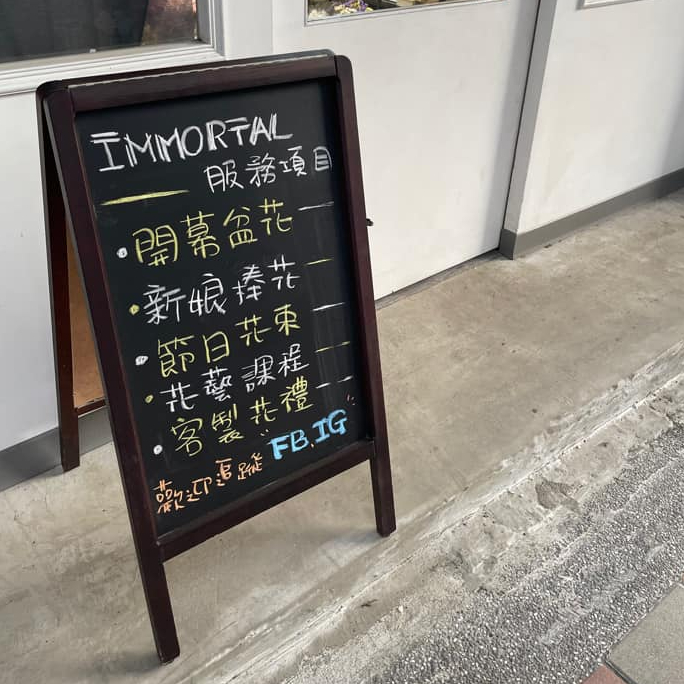 IMMORTAL
服務項目
開幕盆花
新娘捧花
節日花束
花藝課程
客製花禮
歡迎追蹤 FB.IG